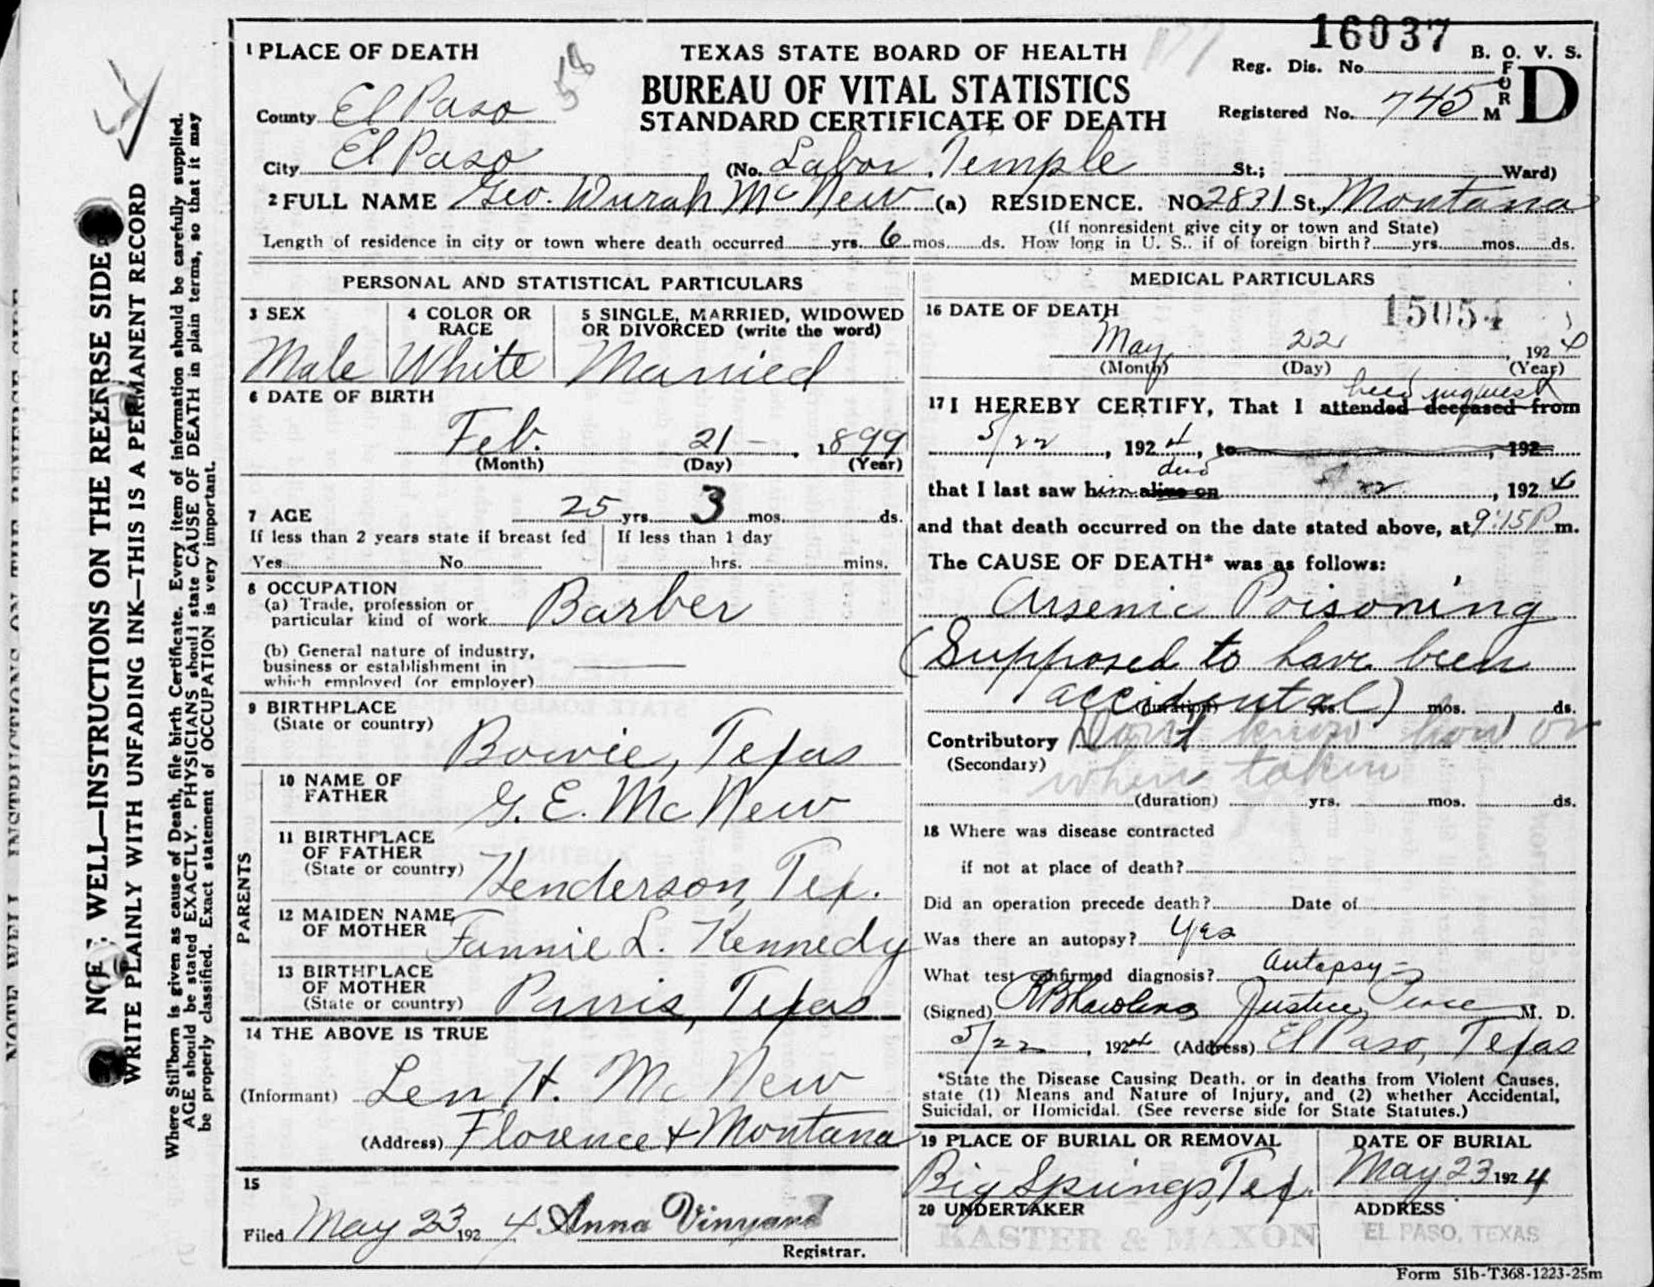 16037
1 PLACE OF DEATH
TEXAS STATE BOARD OF HEALTH
B. O. V. S.
Reg. Dis. No.
BUREAU OF VITAL STATISTICS
FORM D
County El Paso
58
STANDARD CERTIFICATE OF DEATH
Registered No. 745
City El Paso (No. Labor Temple St.; Ward)
2 FULL NAME Geo. Wurah McNew (a) RESIDENCE. NO 2831 St. Montana
(If nonresident give city or town and State)
Length of residence in city or town where death occurred yrs. 6 mos. ds. How long in U. S.. if of foreign birth? yrs. mos. ds.
PERSONAL AND STATISTICAL PARTICULARS
3 SEX
Male
4 COLOR OR RACE
White
5 SINGLE, MARRIED, WIDOWED
OR DIVORCED (write the word)
Married
6 DATE OF BIRTH
Feb. 21 - , 1899
(Month) (Day) (Year)
7 AGE 25 yrs. 3 mos. ds.
If less than 2 years state if breast fed
Yes No
If less than 1 day
hrs. mins.
8 OCCUPATION
(a) Trade, profession or
particular kind of work Barber
(b) General nature of industry,
business or establishment in
which employed (or employer)
9 BIRTHPLACE
(State or country) Bowie, Texas
PARENTS
10 NAME OF
FATHER G. E. McNew
11 BIRTHPLACE
OF FATHER
(State or country) Henderson, Tex.
12 MAIDEN NAME
OF MOTHER Fannie L. Kennedy
13 BIRTHPLACE
OF MOTHER
(State or country) Parris, Texas
14 THE ABOVE IS TRUE
(Informant) Len H. McNew
(Address) Florence & Montana
15
Filed May 23 1924 Anna Vinyard
Registrar.
MEDICAL PARTICULARS
16 DATE OF DEATH
15054
May 22 , 1924
(Month) (Day) (Year)
held inquest
17 I HEREBY CERTIFY, That I attended deceased from
5/22 , 1924, to , 192
dead
that I last saw him alive on 5/22 , 1924
and that death occurred on the date stated above, at 9:15 P m.
The CAUSE OF DEATH* was as follows:
Arsenic Poisoning
(Supposed to have been
accidental)
(duration) yrs. mos. ds.
Contributory Don't know how or
(Secondary) when taken
(duration) yrs. mos. ds.
18 Where was disease contracted
if not at place of death?
Did an operation precede death? Date of
Was there an autopsy? Yes
What test confirmed diagnosis? Autopsy
(Signed) Justice Peace M. D.
5/22 , 1924 (Address) El Paso, Texas
*State the Disease Causing Death. or in deaths from Violent Causes,
state (1) Means and Nature of Injury, and (2) whether Accidental,
Suicidal, or Homicidal. (See reverse side for State Statutes.)
19 PLACE OF BURIAL OR REMOVAL
Big Springs, Tex.
DATE OF BURIAL
May 23 1924
20 UNDERTAKER
KASTER & MAXON
ADDRESS
EL PASO, TEXAS
Form 51b-T368-1223-25m
WELL—INSTRUCTIONS ON THE REERSE SIDE
WRITE PLAINLY WITH UNFADING INK—THIS IS A PERMANENT RECORD
Where Stil'born is given as cause of Death, file birth Certificate. Every item of information should be carefully supplied.
AGE should be stated EXACTLY. PHYSICIANS should state CAUSE OF DEATH in plain terms, so that it may
be properly classified. Exact statement of OCCUPATION is very important.
NOTE WELL INSTRUCTIONS ON THE REVERSE SIDE